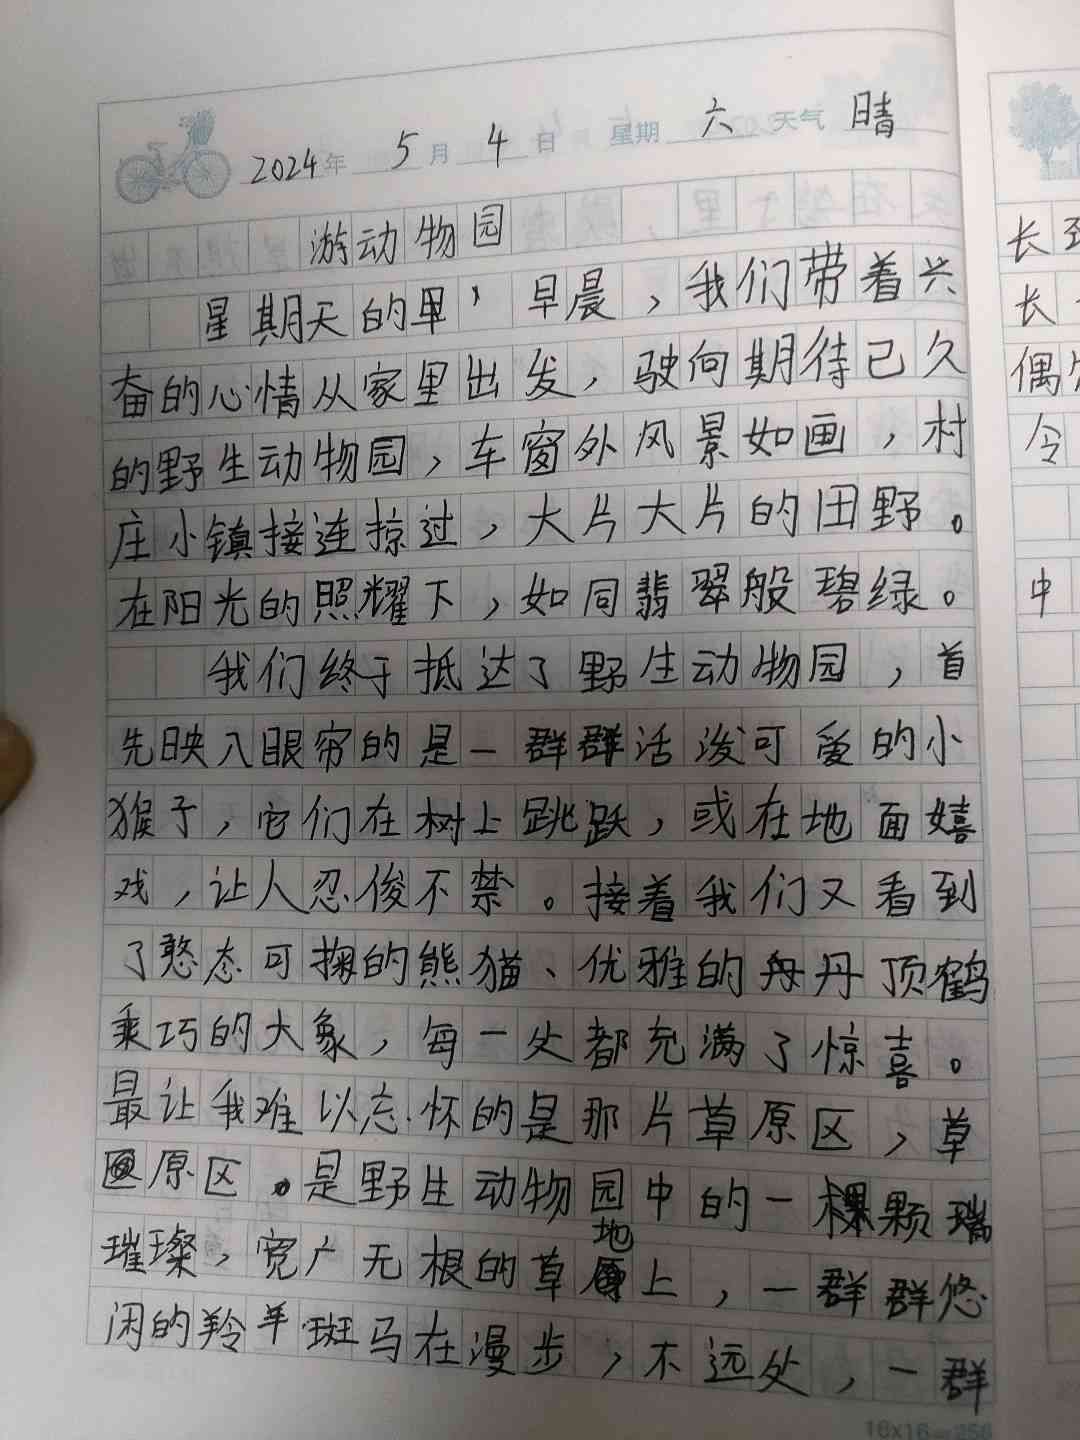 2024年 5月 4日 星期 六 天气 晴
游动物园
星期天的早晨，我们带着兴
奋的心情从家里出发，驶向期待已久
的野生动物园，车窗外风景如画，村
庄小镇接连掠过，大片大片的田野。
在阳光的照耀下，如同翡翠般碧绿。
我们终于抵达了野生动物园，首
先映入眼帘的是一群群活泼可爱的小
猴子，它们在树上跳跃，或在地面嬉
戏，让人忍俊不禁。接着我们又看到
了憨态可掬的熊猫、优雅的丹顶鹤
乘巧的大象，每一处都充满了惊喜。
最让我难以忘怀的是那片草原区，草
原区。是野生动物园中的一颗
璀璨，宽广无根的草地上，一群群悠
闲的羚羊斑马在漫步，不远处，一群
长
长
偶
令
中
16x16=256